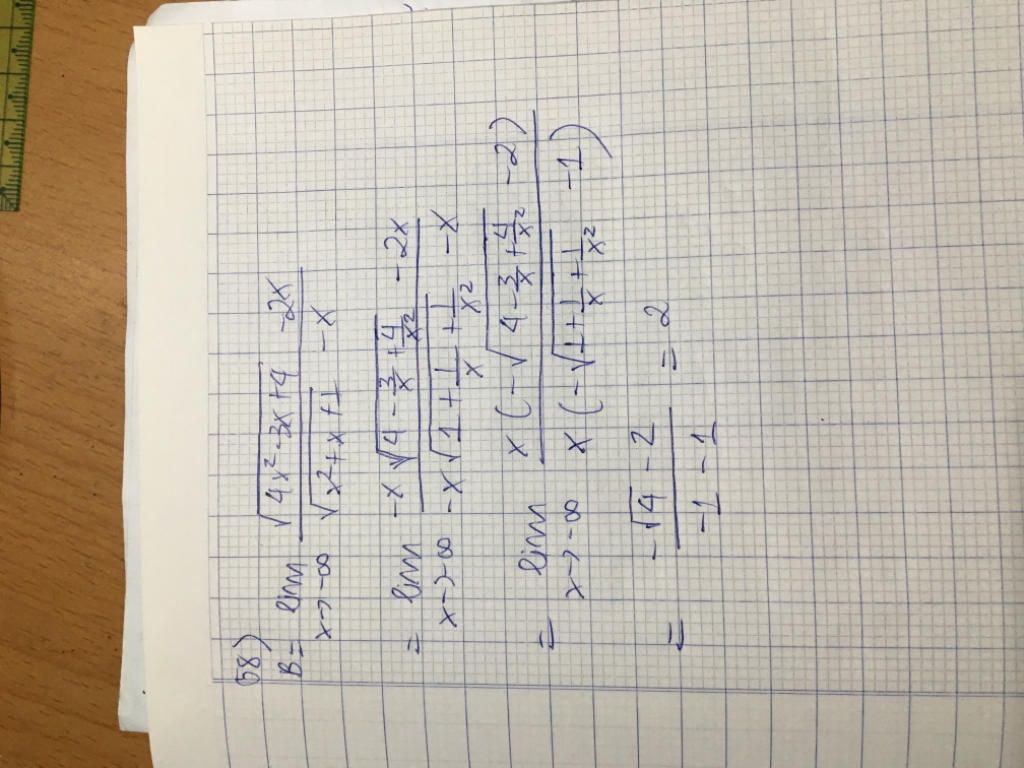 58)
B = lim x→-∞ (√(4x²-3x+4) -2x)/(√(x²+x+1) -x)
= lim x→-∞ (-x√(4-3/x+4/x²) -2x)/(-x√(1+1/x+1/x²) -x)
= lim x→-∞ (x(-√(4-3/x+4/x²) -2))/(x(-√(1+1/x+1/x²) -1))
= (-√4-2)/(-1-1) = 2